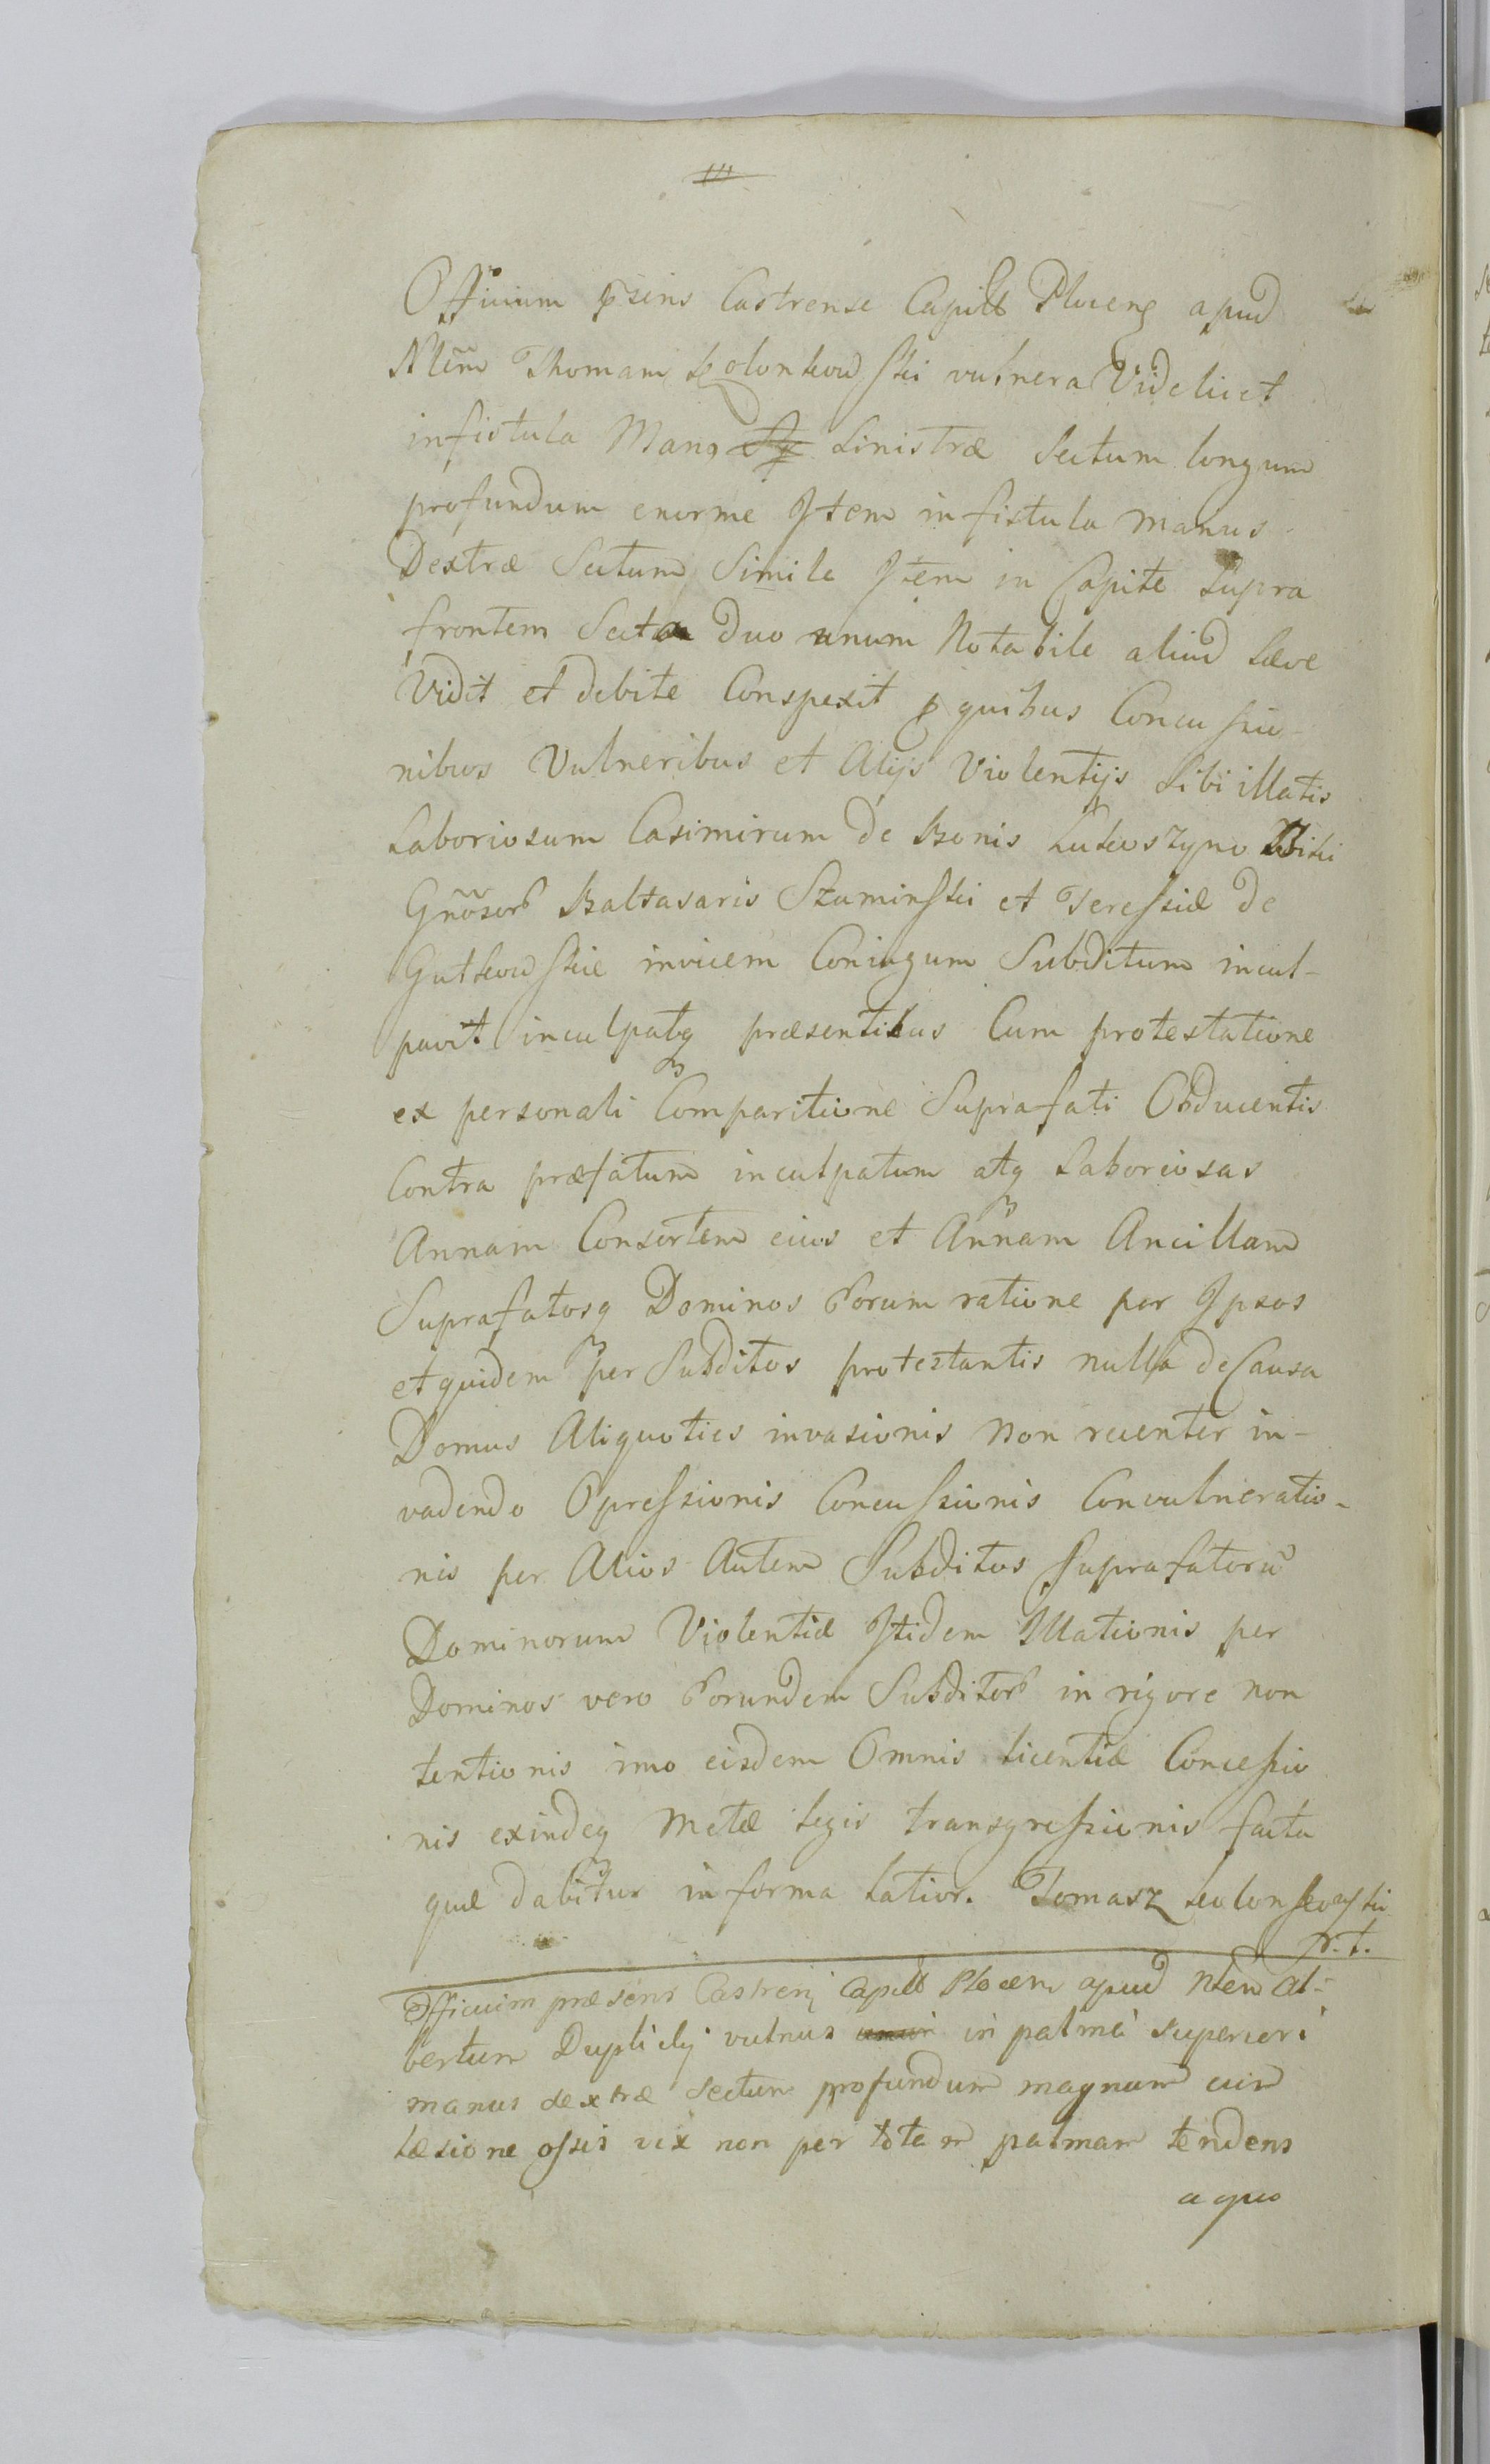 Officium p̄sens Castrense Capitt Plocens apud
Nlem̄ Thomam Kolonkowski vulnera Videlicet
in fistula Mang sinistræ Sectum longum
profundum enorme Item in fistula manus
Dextræ Sectum Simile Item in Capite supra
frontem Secta duo unum Notabile aliud læve
Vidit et debite Conspexit p quibus Concussio-
nibus Vulneribus et Alijs Violentijs sibi illatis
Laboriosum Casimirum de Bonis Lukoszyno
Gn̄osor Baltasaris Szuminski et Teressiæ de
Gutkowskie invicem Coniugum Subditum incul-
pavit inculpatq præsentibus Cum protestatione
ex personali Comparitione Suprafati Obducentis
Contra præfatum inculpatum atq Laboriosas
Annam Consortem eius et Annam Ancillam
Suprafatosq Dominos Eorum ratione per Ipsos
et quidem per Subditos protestantis nulla de Causa
Domus Aliquoties invasionis non recenter in-
vadendo Opressionis Concussionis Convulneratio-
nis per Alios Autem Subditos Suprafatorū
Dominorum Violentiæ Itidem Illationis per
Dominos vero Eorundem Subditor in rigore non
tentionis imo eisdem Omnis licentiæ Concessio
nis exindeq Metæ legis transgressionis facta
quæ dabitur in forma latior. Tomasz Kolonkowski
p.t.
Officium præsens Castrens Capitt Plocen apud Nlem Al-
bertum Duplicki vulnus in palmâ superiori
manus dextræ Sectum profundum magnum cum
læsione ossis vix non per totam palmam tendens
a quo